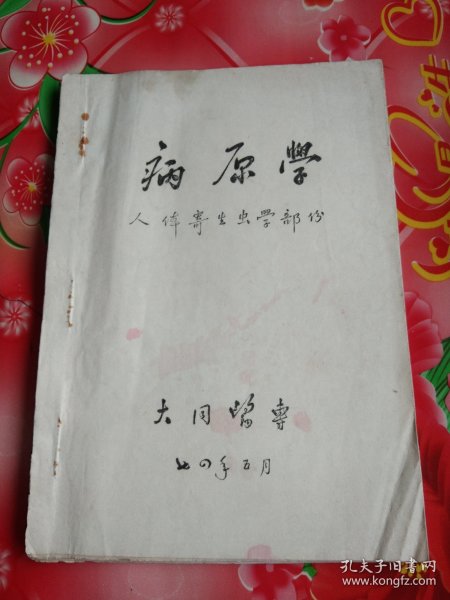 病原學
人体寄生虫学部份
大同醫專
七四年五月
孔夫子旧书网
www.kongfz.com